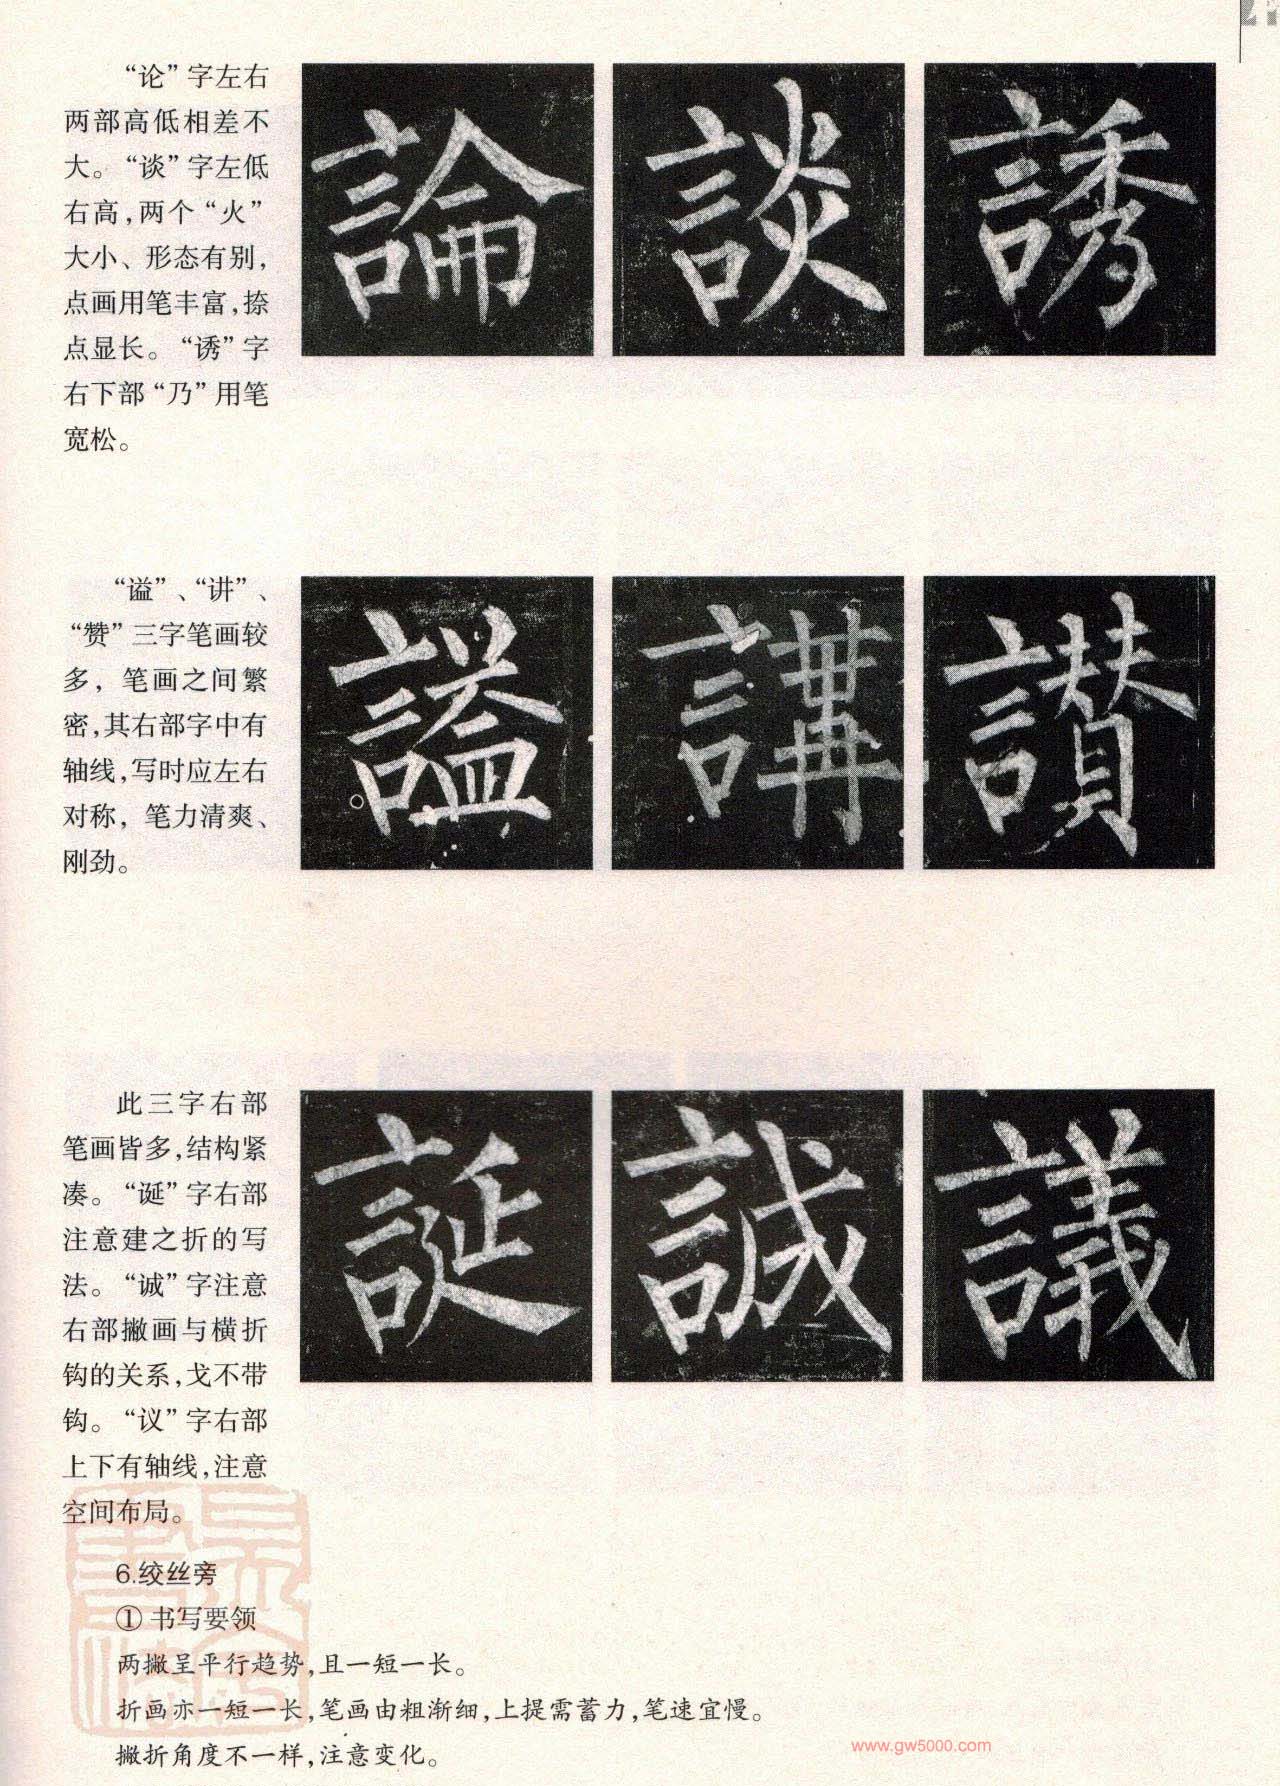 “论”字左右
两部高低相差不
大。“谈”字左低
右高,两个“火”
大小、形态有别,
点画用笔丰富,捺
点显长。“诱”字
右下部“乃”用笔
宽松。
論 談 誘
“谥”、“讲”、
“赞”三字笔画较
多，笔画之间繁
密,其右部字中有
轴线,写时应左右
对称，笔力清爽、
刚劲。
謚 講 讃
此三字右部
笔画皆多,结构紧
凑。“诞”字右部
注意建之折的写
法。“诚”字注意
右部撇画与横折
钩的关系,戈不带
钩。“议”字右部
上下有轴线,注意
空间布局。
誕 誠 議
6.绞丝旁
① 书写要领
两撇呈平行趋势,且一短一长。
折画亦一短一长,笔画由粗渐细,上提需蓄力,笔速宜慢。
撇折角度不一样,注意变化。
www.gw5000.com